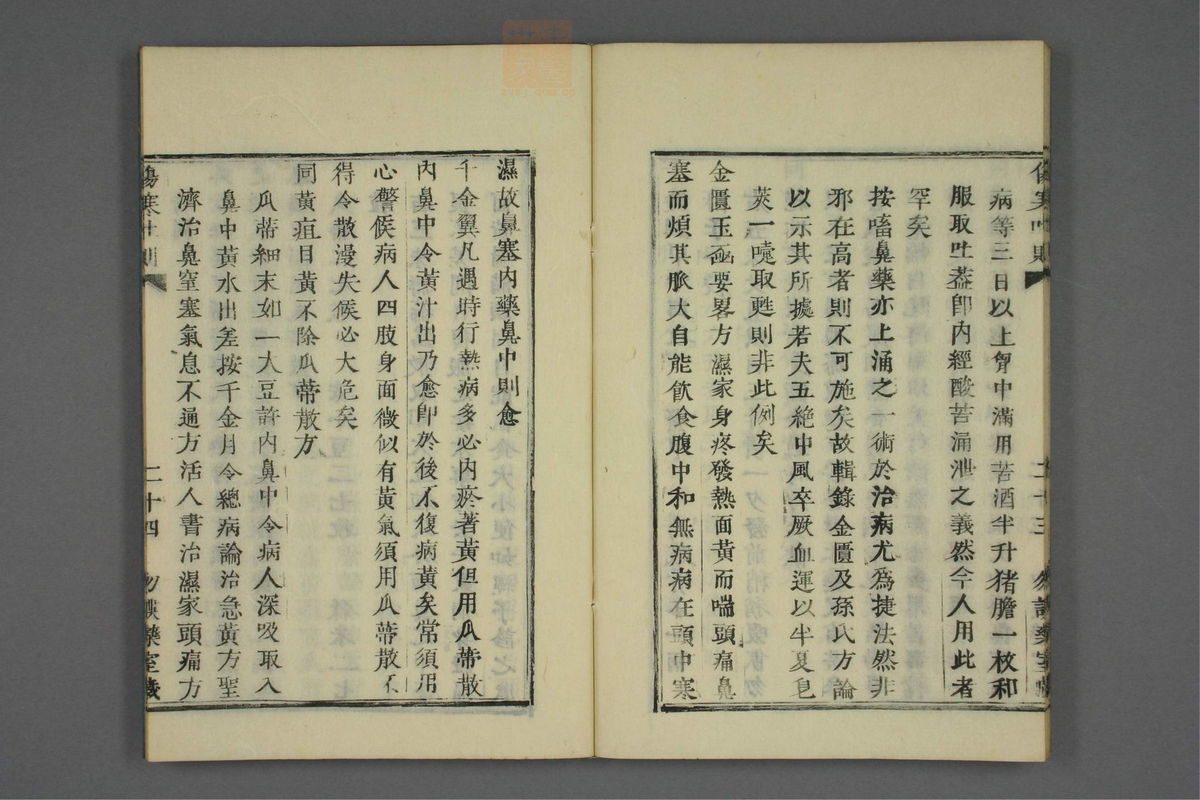 病等三日以上胷中滿用苦酒半升猪膽一枚和
服取吐葢卽内經酸苦涌泄之義然今人用此者
罕矣
按㗜鼻藥亦上涌之一術於治病尤爲捷法然非
邪在高者則不可施矣故輯錄金匱及孫氏方論
以示其所據若夫五絕中風卒厥血運以半夏皂
莢一嚏取甦則非此例矣
金匱玉函要畧方濕家身疼發熱面黃而喘頭痛鼻
塞而煩其脈大自能飲食腹中和無病病在頭中寒
二十三
濕故鼻塞内藥鼻中則愈
千金翼凡遇時行熱病多必内瘀著黃但用瓜蒂散
内鼻中令黃汁出乃愈卽於後不復病黃矣常須用
心警候病人四肢身面微似有黃氣須用瓜蒂散不
得令散漫失候必大危矣
同黃疸目黃不除瓜蒂散方
瓜蒂細末如一大豆許内鼻中令病人深吸取入
鼻中黃水出差按千金月令總病論治急黃方聖
濟治鼻窒塞氣息不通方活人書治濕家頭痛方
傷寒廿則 二十四 藥室藏